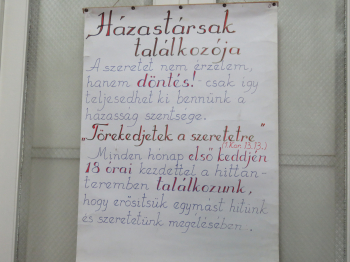 Házastársak
találkozója
A szeretet nem érzelem,
hanem döntés! - csak így
teljesedhet ki bennünk a
házasság szentsége.
„Törekedjetek a szeretetre"
(1Kor. 13,13.)
Minden hónap első keddjén
18 órai kezdettel a hittan-
teremben találkozunk,
hogy erősítsük egymást hitünk
és szeretetünk megélésében.